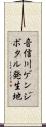 音信川ゲンジボタル発生地